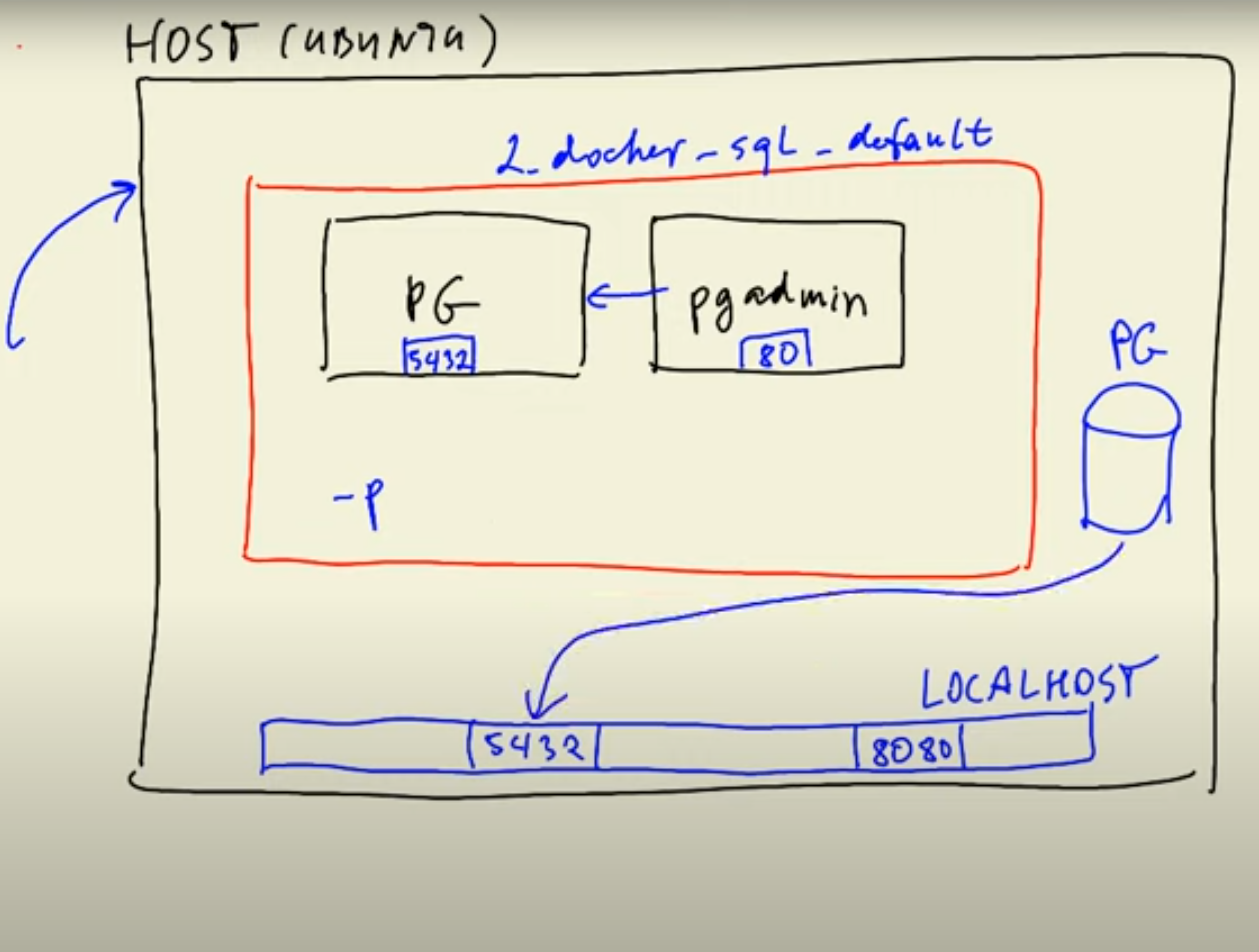 HOST (UBUNTU)
2_docker_sql_default
PG
5432
pgadmin
80
PG
-p
LOCALHOST
5432
8080